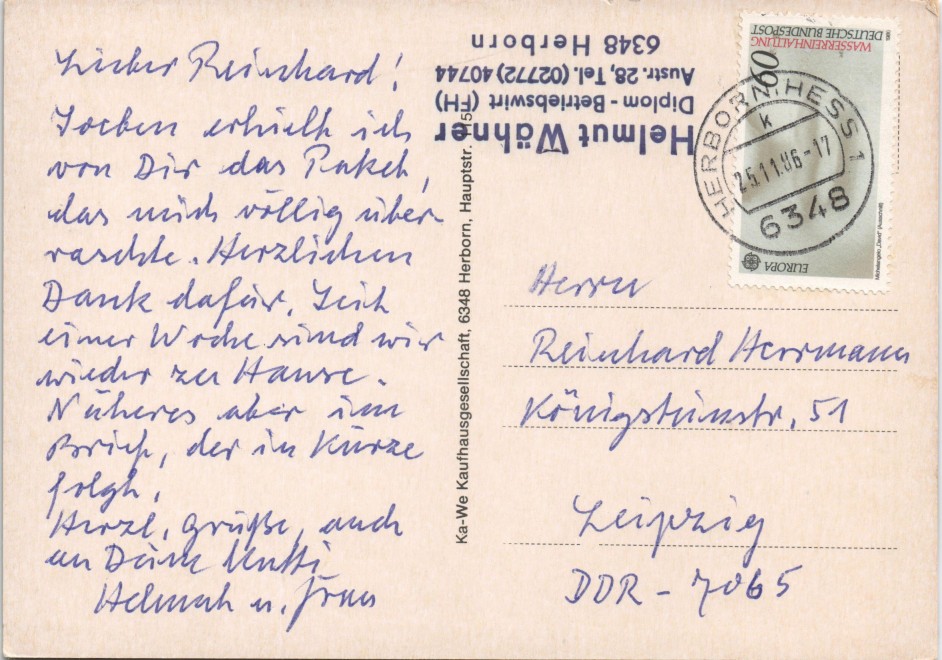 Lieber Reinhard!
Soeben erhielt ich
von Dir das Paket,
das mich völlig über-
raschte. Herzlichen
Dank dafür. Seit
einer Woche sind wir
wieder zu Hause.
Näheres aber im
Brief, der in Kürze
folgt.
Herzl. Grüße, auch
an Deine Mutti
Helmut u. Frau
Helmut Wähner
Diplom - Betriebswirt (FH)
Austr. 28, Tel. (02772) 40744
6348 Herborn
Ka-We Kaufhausgesellschaft, 6348 Herborn, Hauptstr.
DEUTSCHE BUNDESPOST
WASSERREINHALTUNG
60
EUROPA
HERBORN, HESS 1
k
25.11.86-17
6348
Herrn
Reinhard Herrmann
Königsteinstr. 51
Leipzig
DDR - 7065